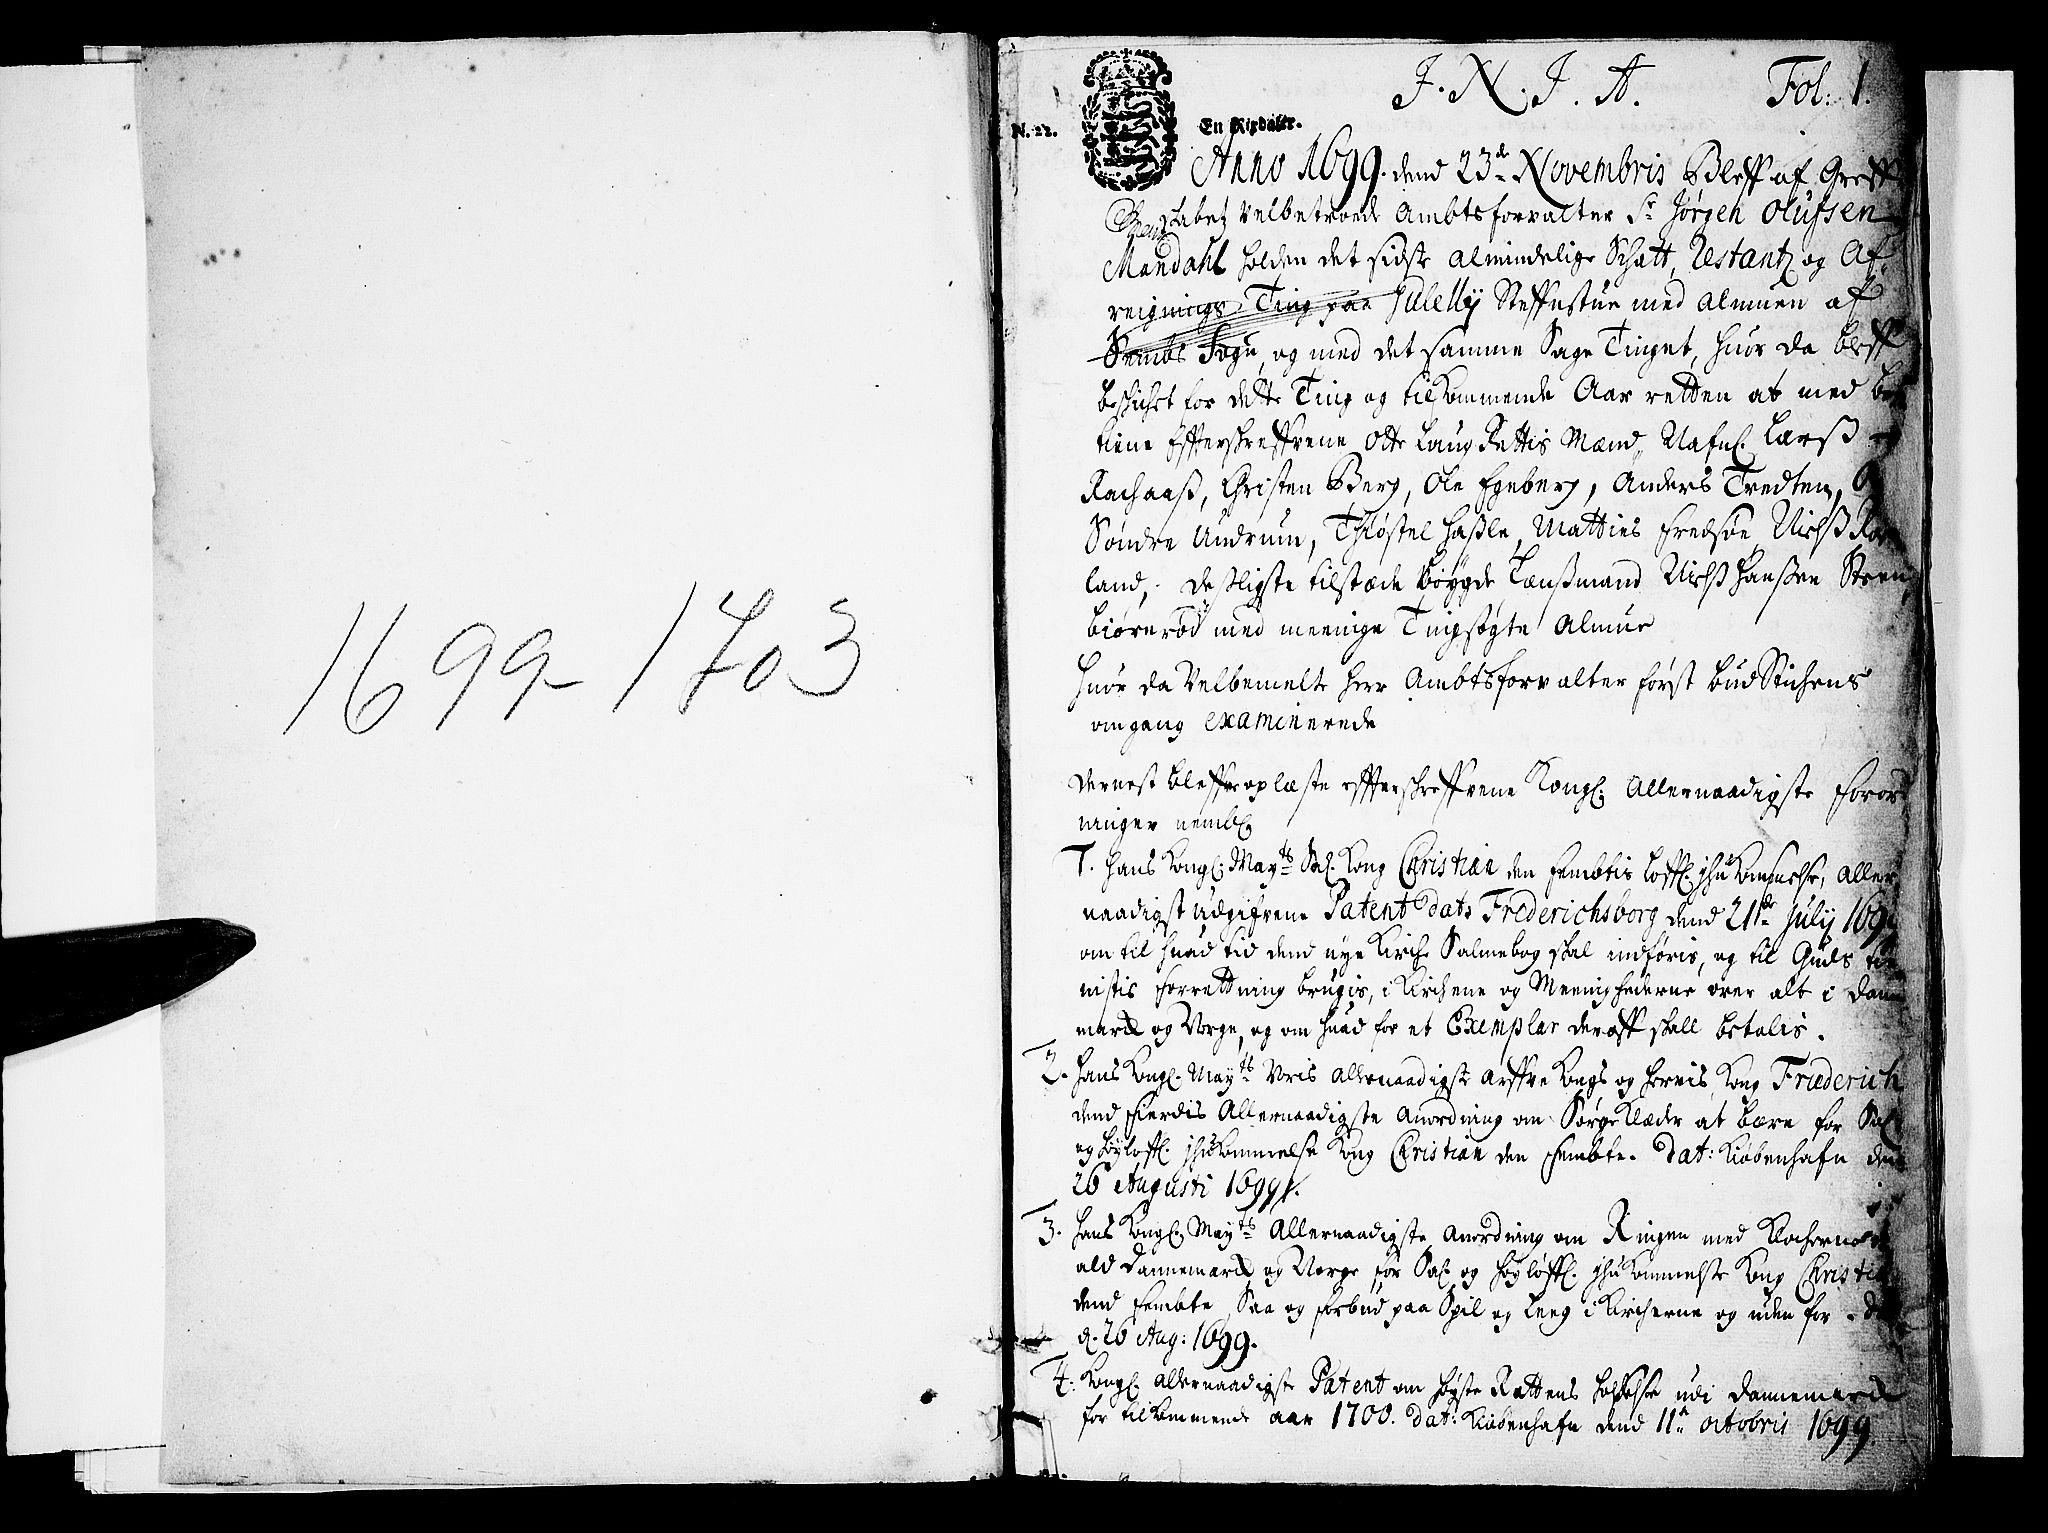 1699-1703
J. N. J. A. Fol: 1.
N. 22. En Rixdaler.
Anno 1699. dend 23de Novembris Bleff af Greff
skabetz Velbetroede Ambtsforvalter Sr Jørgen Olufsen
Mandahl holden det sidste almindelige Schatt, Restantz og Af-
reignings Ting paa Julelly Steffnstue med Almuen af
Sembs Sogn, og med det samme Sage Tinget, huor da bleff
beskichet for dette Ting og tilkommende Aar retten at med be
tiene Effterskreffvene Otte Laug Rettis Mænd, Nafnl. Larß
Rachaaß, Christen Berg, Ole Egeberg, Anders Tredten,
Søndre Undrum, Thiøstel Haßle, Matties Fredsøe, Nielß
land, Desligste tilstæde bøygde Lænßmand Nielß Hanßen Steen
biørnrød med meenige Tingsøgte Almue
Huor da Velbemelte Herr Ambtsforvalter først budStichens
omgang examinerede
Dernest bleffve oplæste effterskreffvene Kongl. Allernaadigste Foror
ninger nembl.
1. Hans Kongl. Mayts Sal. Kong Christian den Fembtis loffl. jhukommelse, Aller
naadigst udgifvene Patent dats Friderichsborg dend 21de July 169
om til huad tid dend nye Kirche Salmebog skal indføris, og til Guds tie
nistis forrettning brugis, i Kirchene og Meenighederne over alt i Dan
march og Norge, og om huad for et Exemplar deraff skall betalis.
2. Hans Kongl. Mayts Voris allernaadigste Arffve Kongs og Herris, Kong Friderich
dend Fierdis Allernaadigste Anordning om Sørge Klæder at bære for Sal.
og høyloffl. jhukommelse Kong Christian den Fembte. Dat: Kiøbenhafn den
26 Augusti 1699.
3. Hans Kongl. Mayts Allernaadigste Anordning om Ringen med Klocherne
ald Dannemarck og Norge for Sal. og høyloffl. jhukommelse Kong Christian
dend Fembte, Saa og forbud paa Spil og Leeg i Kircherne og uden for.
d. 26 Aug: 1699.
4: Kongl. allernaadigste Patent om Høyste Rættens holdelse udi Dannemarck
for tilkommende aar 1700. Dat: Kiøbenhafn dend 11te octobris 1699.